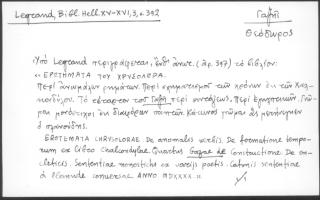 Legrand, Bibl. Hell. XV-XVI, 3, σ. 392
Γαζῆ
Θεόδωρος
Ὑπὸ Legrand περιγράφεται, ἔνθ' ἀνωτ. (ἀρ. 397) τὸ βιβλίον:
« ΕΡΩΤΗΜΑΤΑ ΤΟΥ ΧΡΥΣΟΛΩΡΑ.
Περὶ ἀνωμάλων ῥημάτων. Περὶ σχηματισμοῦ τῶν χρόνων ἐκ τῶν Χαλ-
κονδύλου. Τὸ τέταρτον τοῦ Γαζῆ περὶ συντάξεως. Περὶ ἐγκλιτικῶν. Γνῶ-
μαι μονόστιχοι ἐκ διαφόρων ποιητῶν. Κάτωνος γνῶμαι ἃς μεθήρμηνευ
ὁ Πλανούδης.
EROTEMATA CHRYSOLORAE De anomalis verbis. De formatione tempo-
rum ex libro Chalcondylae. Quartus Gazae de Constructione De en-
cleticis. Sententiae monostichi ex varijs poetis. Catonis sententiae
à Planude conversae ANNO MDXXXX »